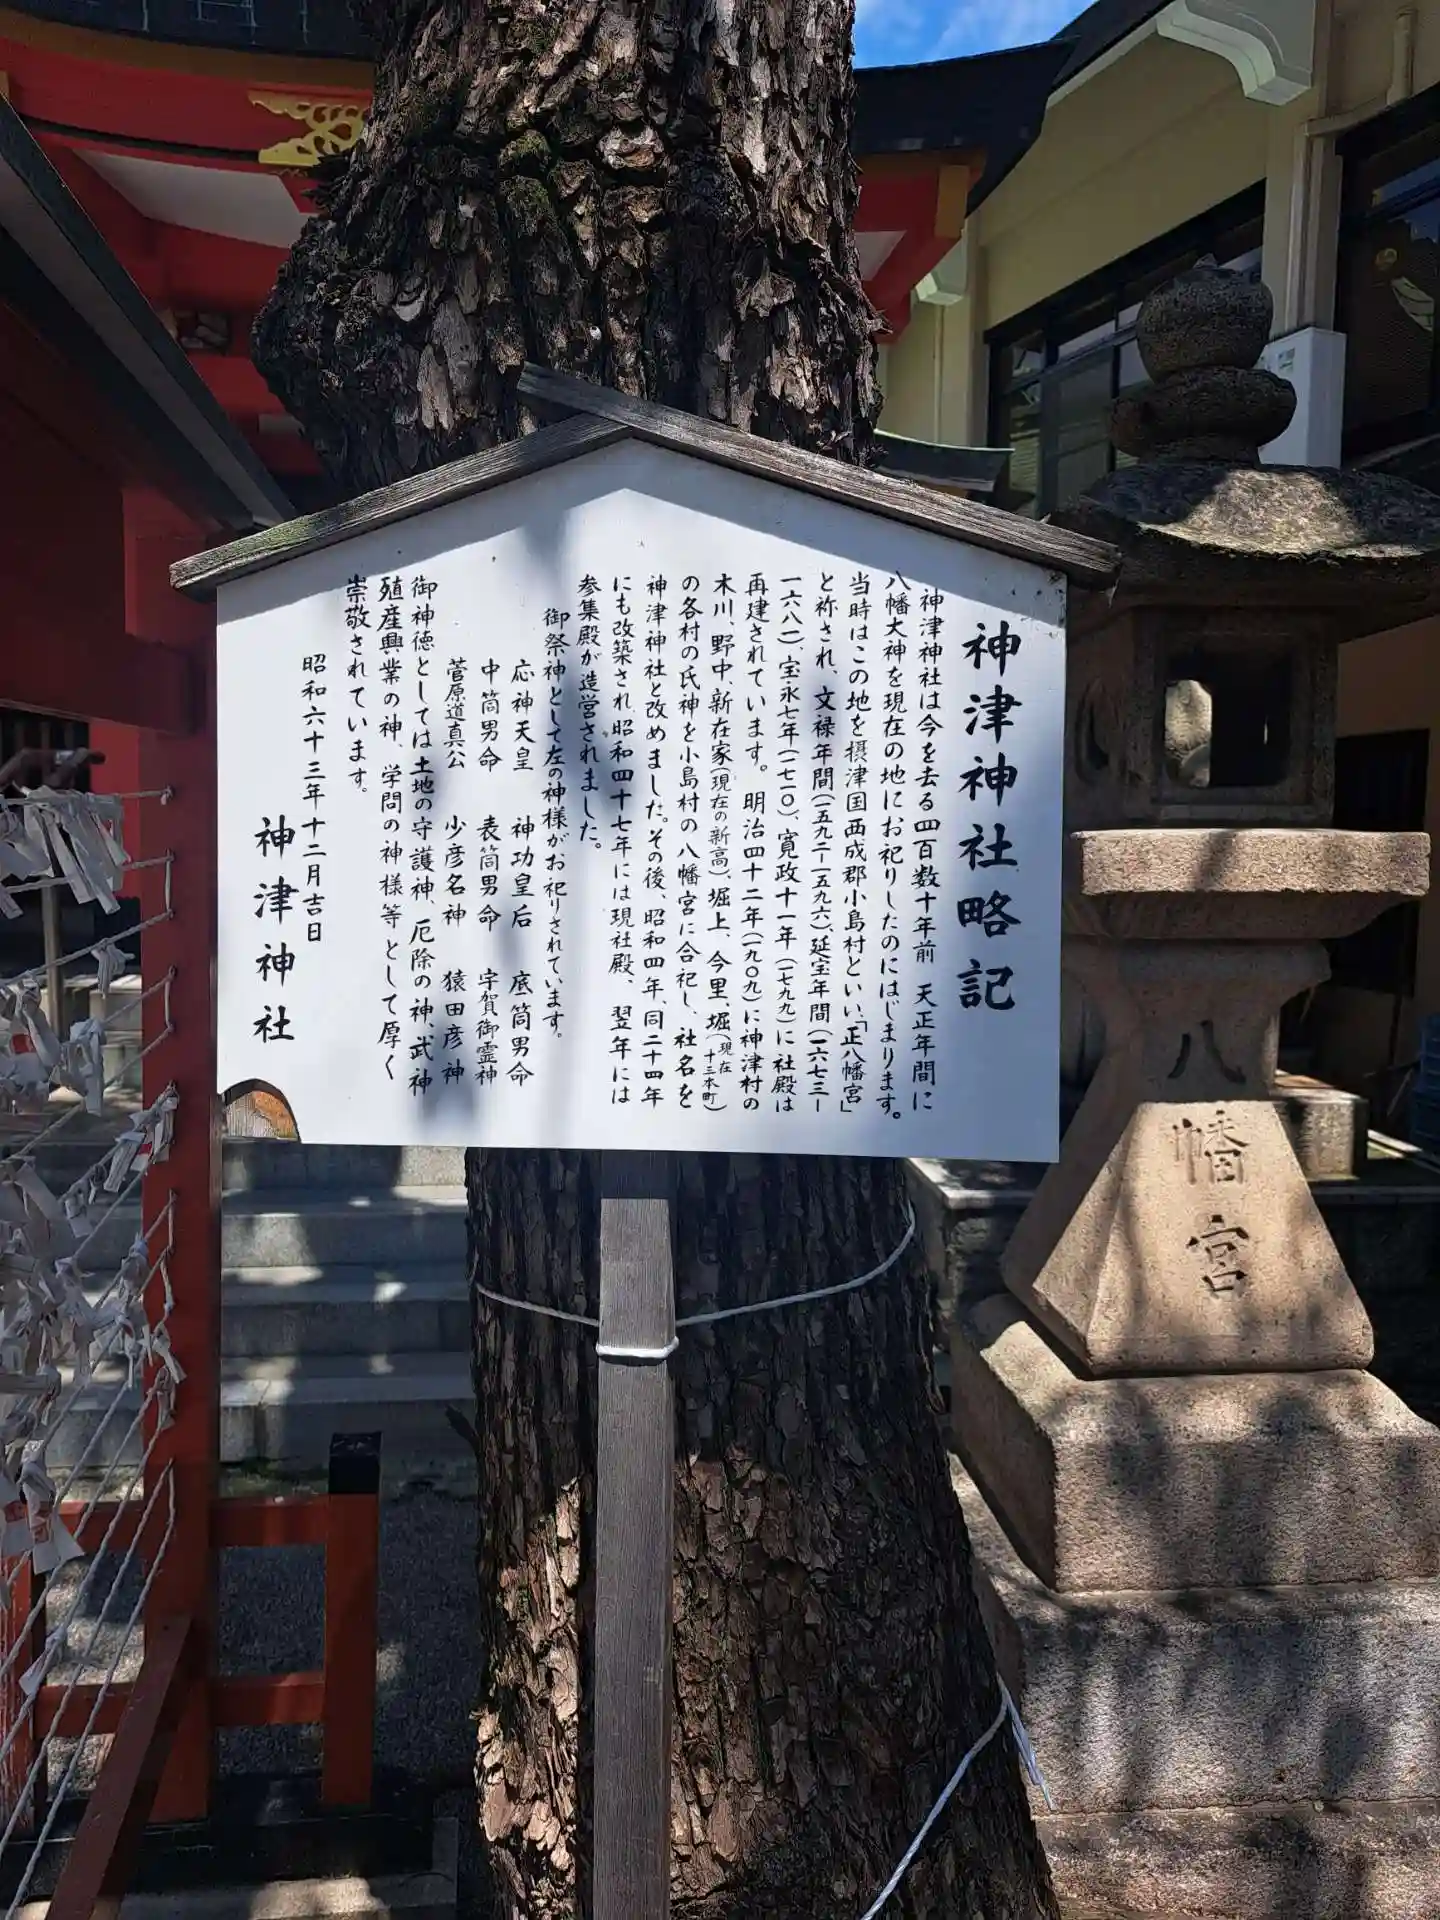 神津神社略記
神津神社は今を去る四百数十年前 天正年間に
八幡大神を現在の地にお祀りしたのにはじまります。
当時はこの地を摂津国西成郡小島村といい、「正八幡宮」
と称され、文禄年間(一五九二ー一五九六)、延宝年間(一六七三ー
一六八一)、宝永七年(一七一〇)、寛政十一年(一七九九)に社殿は
再建されています。明治四十二年(一九〇九)に神津村の
木川、野中、新在家(現在の新高)、堀上、今里、堀(現在十三本町)
の各村の氏神を小島村の八幡宮に合祀し、社名を
神津神社と改めました。その後、昭和四年、同二十四年
にも改築され昭和四十七年には現社殿、翌年には
参集殿が造営されました。
御祭神として左の神様がお祀りされています。
応神天皇 神功皇后 底筒男命
中筒男命 表筒男命 宇賀御霊神
菅原道真公 少彦名神 猿田彦神
御神徳としては土地の守護神、厄除の神、武神
殖産興業の神、学問の神様等として厚く
崇敬されています。
昭和六十三年十二月吉日
神津神社
八幡宮